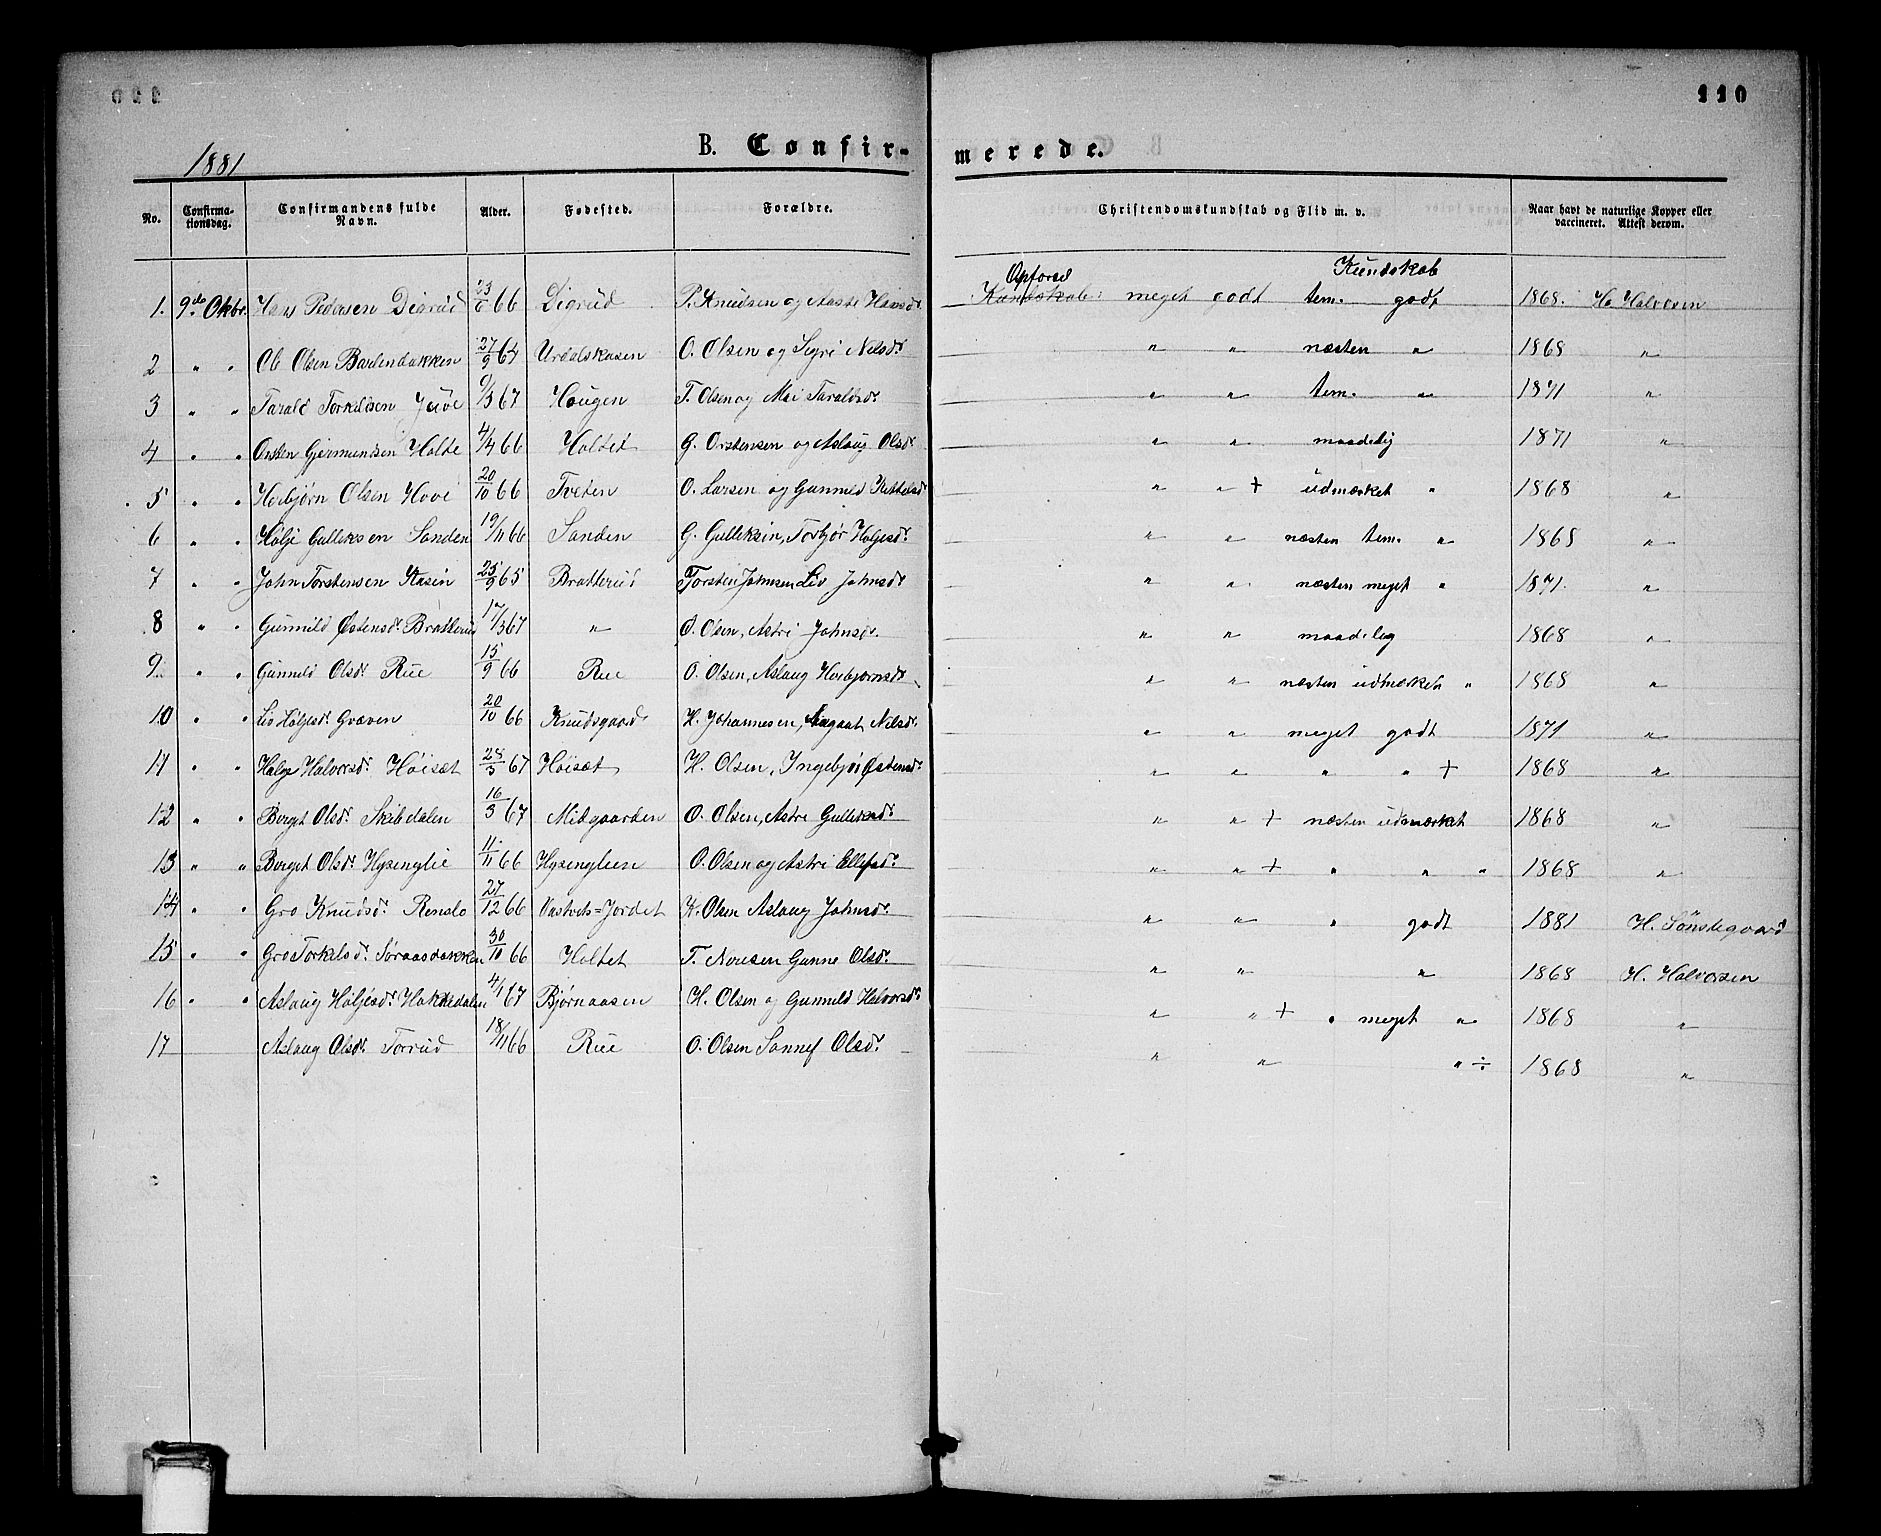 110
B. Confir-
merede.
1881
No. Confirma-tionsdag. Confirmandens fulde Navn. Alder. Fødested. Forældre. Christendomskundskab og Flid m. v. Naar havt de naturlige Kopper eller vaccineret. Attest derom.
Opførsel Kundskab
1. 9de Okbr. Hans Pedersen Digrud 23/6 66 Digrud P. Knudsen og Aaste Hansdr. Kundskab: meget godt tem. godt 1868. H. Halvorsen
2 " " Ole Olsen Bordenbakken 27/9 64 Urdalskasen O. Olsen og Sigri Nilsdr. " " næsten " 1868 "
3 " " Tarald Torkildsen Juve 9/3 67 Haugen T. Olsen og Mari Taraldsdr. " " tem. " 1871 "
4 " " Orsten Gjermundsen Holte 4/4 66 Holtet G. Orstensen og Aslaug Olsdr. " " maadelig 1871 "
5 " " Herbjørn Olsen Hovi 20/10 66 Tveten O. Larsen og Gunnild Kittelsdr " " + udmærket " 1868 "
6 " " Holje Gulleksen Sanden 19/11 66 Sanden G. Gulleksen, Torbjør Holjesdr. " " næsten tem. " 1868 "
7 " " John Torstensen Aasen 25/9 65 Bratterud Torsten Johnsen Liv Johnsdr. " " næsten meget " 1871. "
8 " " Gunnild Østensdr. Bratterud 17/3 67 " Ø. Olsen, Astri Johnsdr. " " maadelig 1868 "
9 " " Gunnild Olsdr. Rue 15/9 66 Rue O. Olsen, Aslaug Herbjørnsdr. " " næsten udmærket " 1868 "
10 " " Liv Holjesdr. Graven 20/10 66 Knudsgaard H. Johannesen, Aagaat Nilsdr. " " meget godt 1871 "
11 " " Helge Halvorsdr. Høisæt 28/3 67 Høisæt H. Olsen, Ingebjør Østensdr. " " " " + 1868 "
12 " " Berget Olsdr. Skibdalen 16/3 67 Midgaarden O. Olsen, Astri Gulleksdr. " " + næsten udmærket 1868 "
13 " " Berget Olsdr. Hysenglie 11/11 66 Hysenglien O. Olsen og Astri Ellefsdr. " " + " " " 1868 "
14 " " Gro Knudsdr. Renslo 27/12 66 =Jordet K. Olsen Aslaug Johnsdr. " " " godt 1881 H. Sønstegaard
15 " " Gro Torkelsdr. Søraasbakken 30/10 66 Holtet T. Gunne Olsdr. " " " 1868 H. Halvorsen
16 " " Aslaug Holjesdr. Hakkedalen 4/1 67 Bjørnaasen H. Olsen og Gunnild Halvorsdr. " " + " meget " 1868 "
17 Aslaug Olsdr. Torrud 18/11 66 Rue O. Olsen Sannef Olsdr. " " " ÷ 1868 "